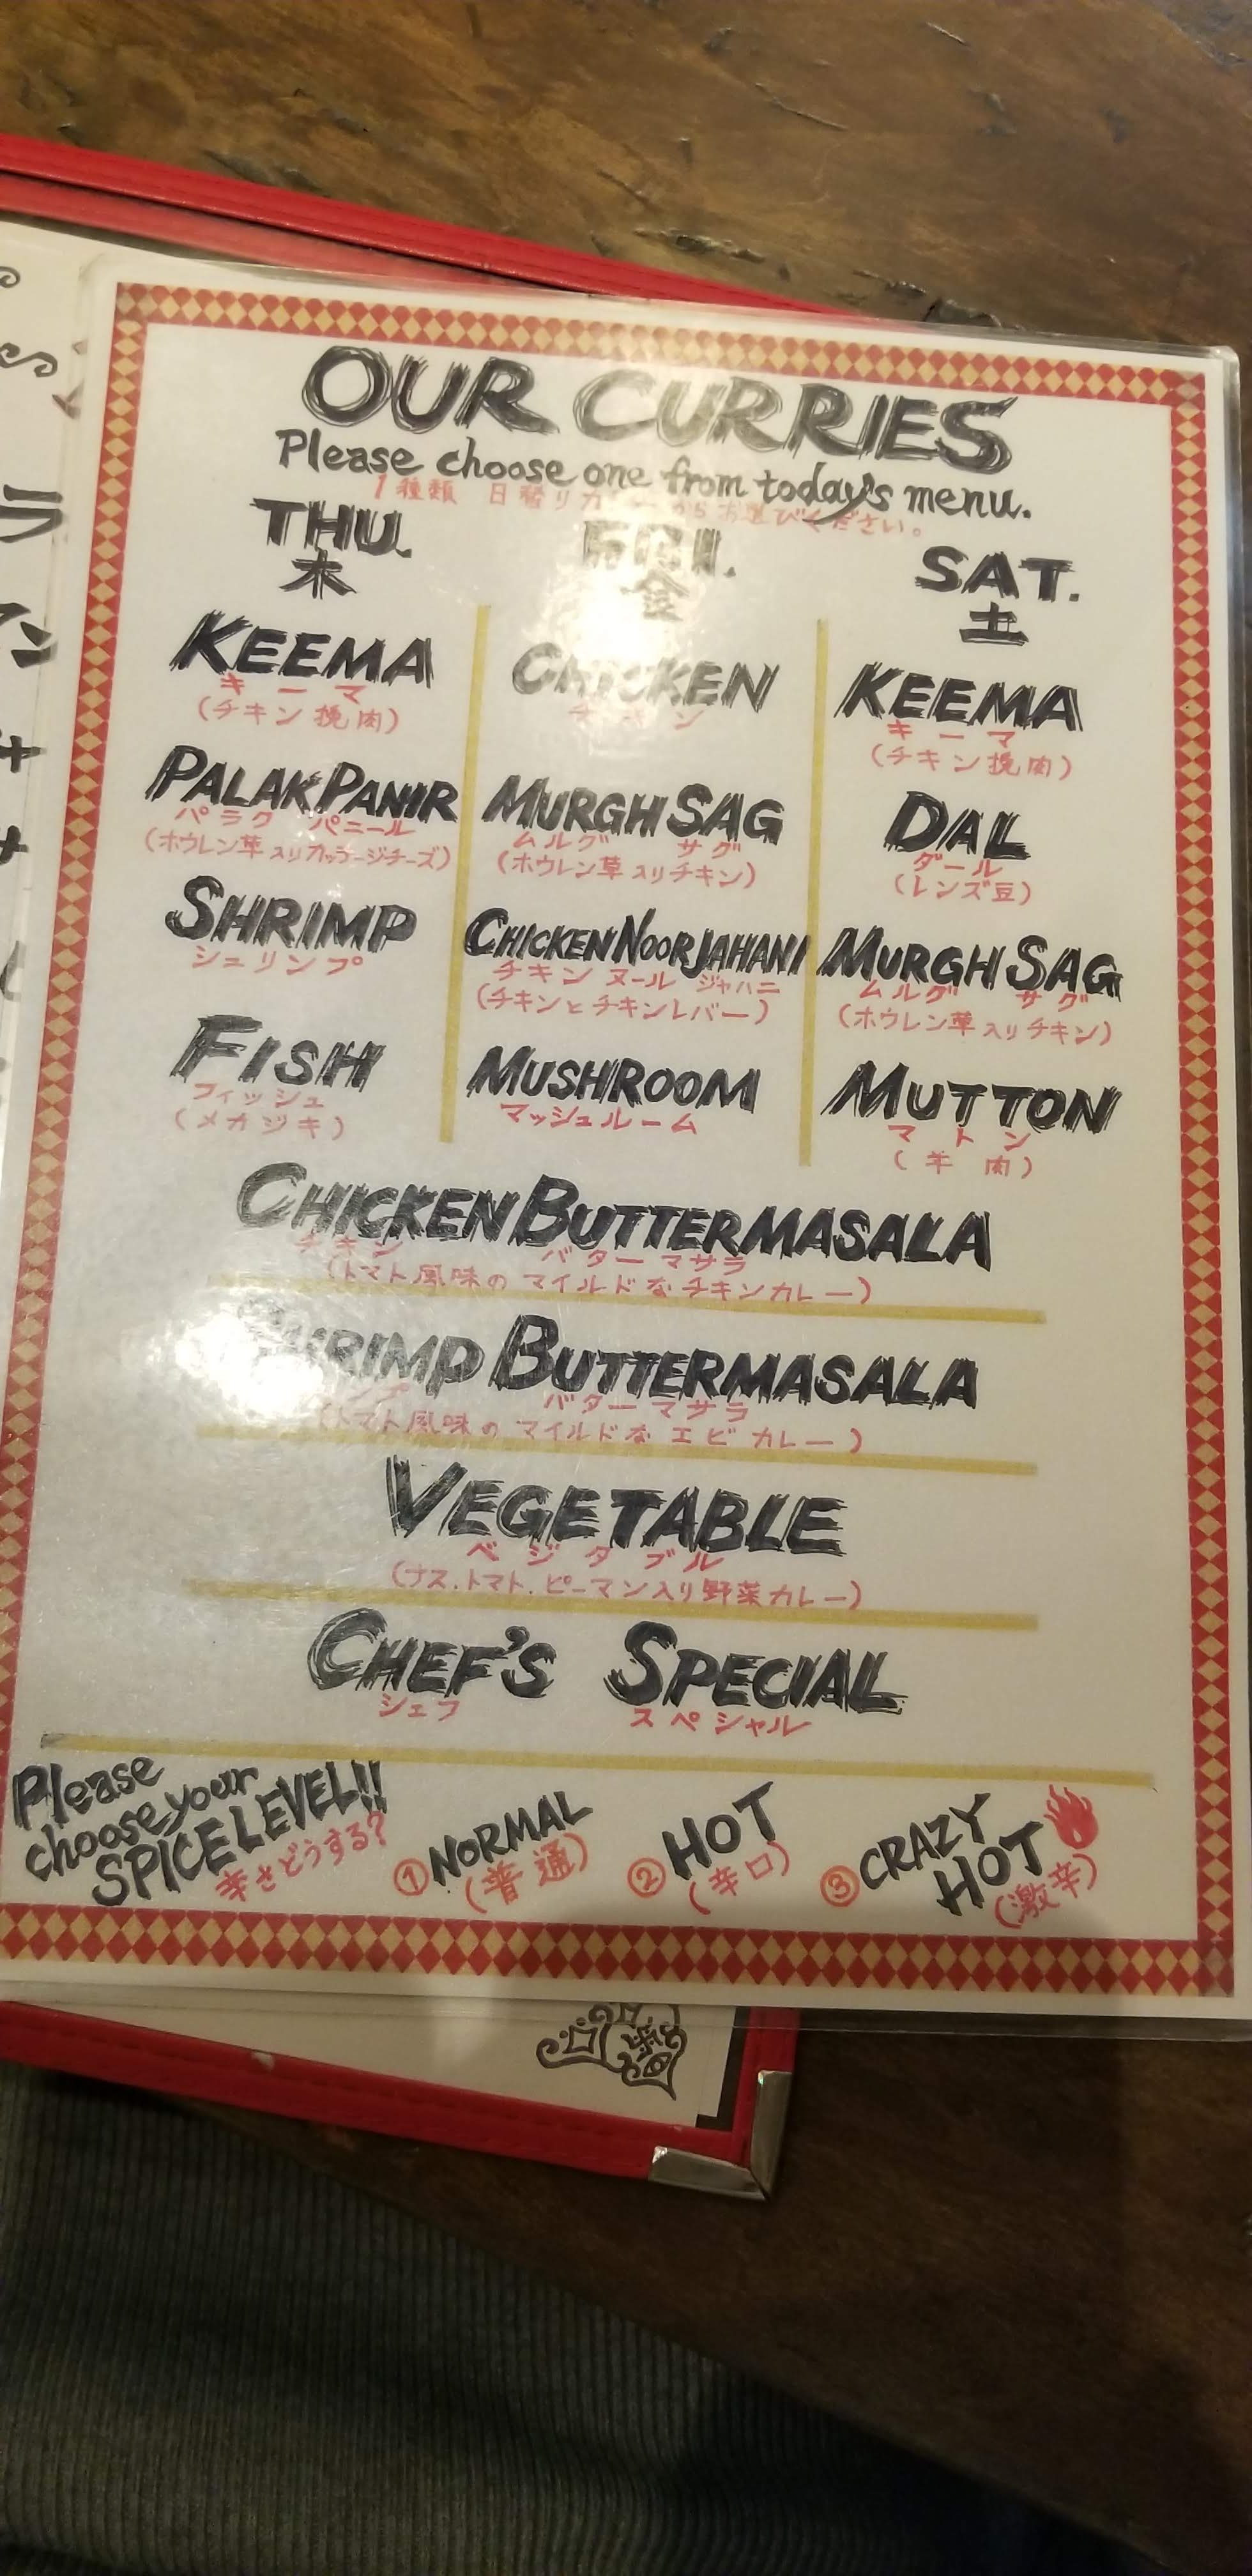 OUR CURRIES
Please choose one from today's menu.
1種類 日替りカ からお選びください。
THU.
木
KEEMA
キーマ
(チキン挽肉)
PALAK PANIR
パラク パニール
(ホウレン草入りカッテージチーズ)
SHRIMP
シュリンプ
FISH
フィッシュ
(メカジキ)
FRI.
金
CHICKEN
チキン
MURGH SAG
ムルグ サグ
(ホウレン草入りチキン)
CHICKEN NOORJAHANI
チキン ヌール ジャハニ
(チキンとチキンレバー)
MUSHROOM
マッシュルーム
SAT.
土
KEEMA
キーマ
(チキン挽肉)
DAL
ダール
(レンズ豆)
MURGH SAG
ムルグ サグ
(ホウレン草入りチキン)
MUTTON
マトン
(羊肉)
CHICKEN BUTTERMASALA
チキン バターマサラ
(トマト風味のマイルドなチキンカレー)
SHRIMP BUTTERMASALA
ンプ バターマサラ
(トマト風味のマイルドなエビカレー)
VEGETABLE
ベジタブル
(ナス.トマト.ピーマン入り野菜カレー)
CHEF'S SPECIAL
シェフ スペシャル
Please
choose your
SPICE LEVEL!!
辛さどうする?
①NORMAL
(普通)
②HOT
(辛口)
③CRAZY
HOT
(激辛)